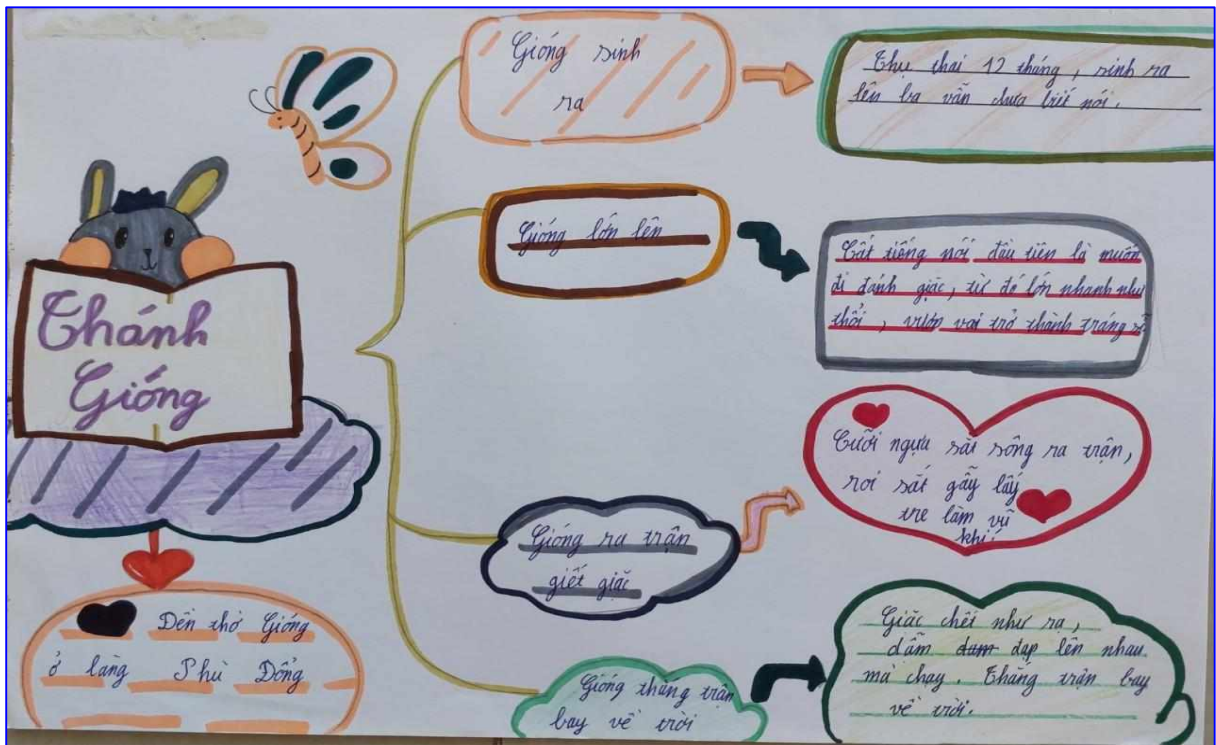 Thánh
Gióng
Đền thờ Gióng
ở làng Phù Đổng
Gióng sinh
ra
Thụ thai 12 tháng, sinh ra
lên ba vẫn chưa biết nói.
Gióng lớn lên
Cất tiếng nói đầu tiên là muốn
đi đánh giặc, từ đó lớn nhanh như
thổi, vươn vai trở thành tráng sĩ
Gióng ra trận
giết giặc
Cưỡi ngựa sắt sông ra trận,
roi sắt gẫy lấy
tre làm vũ
khí.
Gióng thắng trận
bay về trời
Giặc chết như rạ,
dẫm đạp lên nhau
mà chạy. Thắng trận bay
về trời.